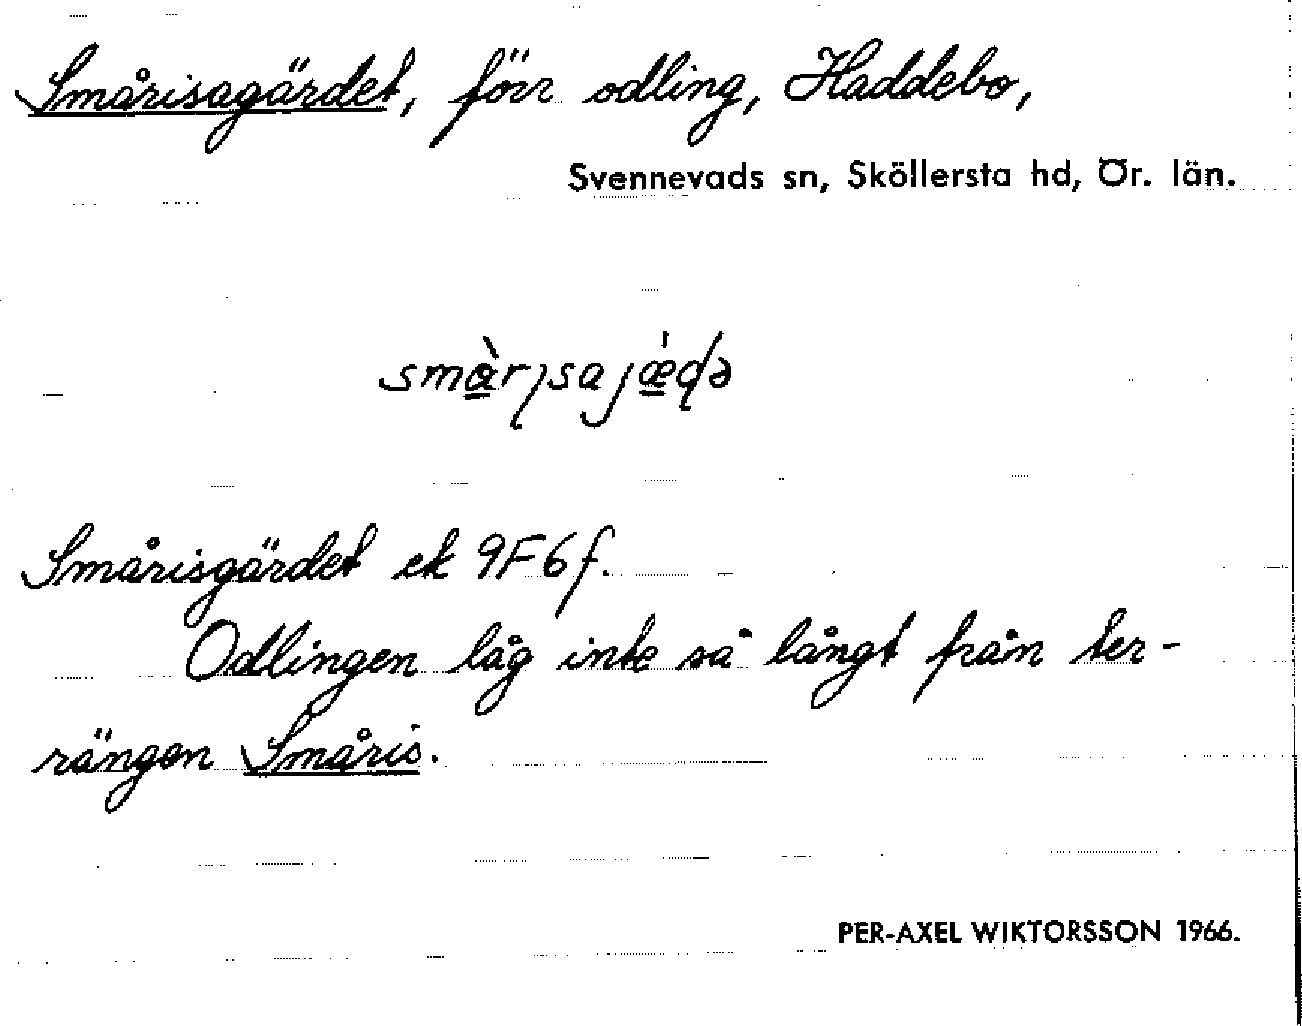 Smårisagärdet, förr odling, Haddebo,
Svennevads sn, Sköllersta hd, Ör. län.
Smårisgärdet ek 9F6f.
Odlingen låg inte så långt från ter-
rängen Småris.
PER-AXEL WIKTORSSON 1966.